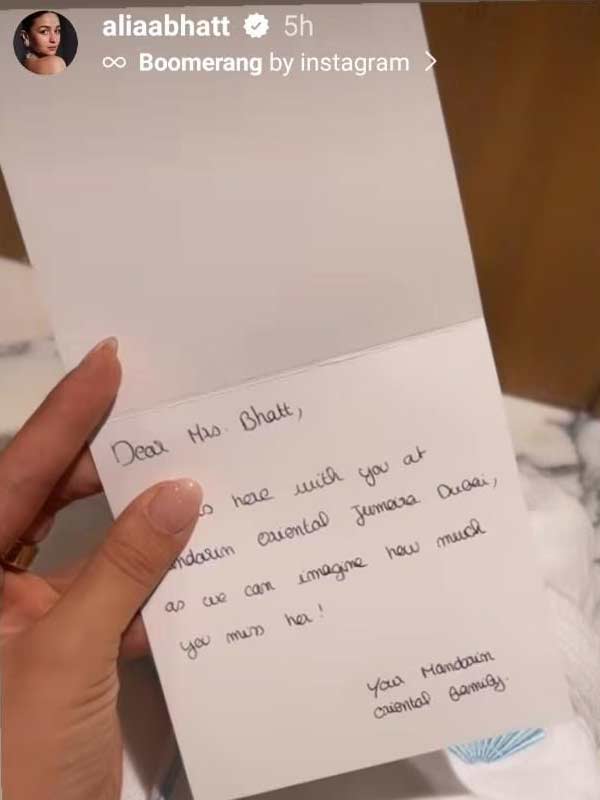 aliaabhatt 5h
∞ Boomerang by instagram >
Dear Mrs. Bhatt,
is here with you at
ndarin oriental Jumeira Dubai,
as we can imagine how much
you miss her!
Your Mandarin
Oriental Family.